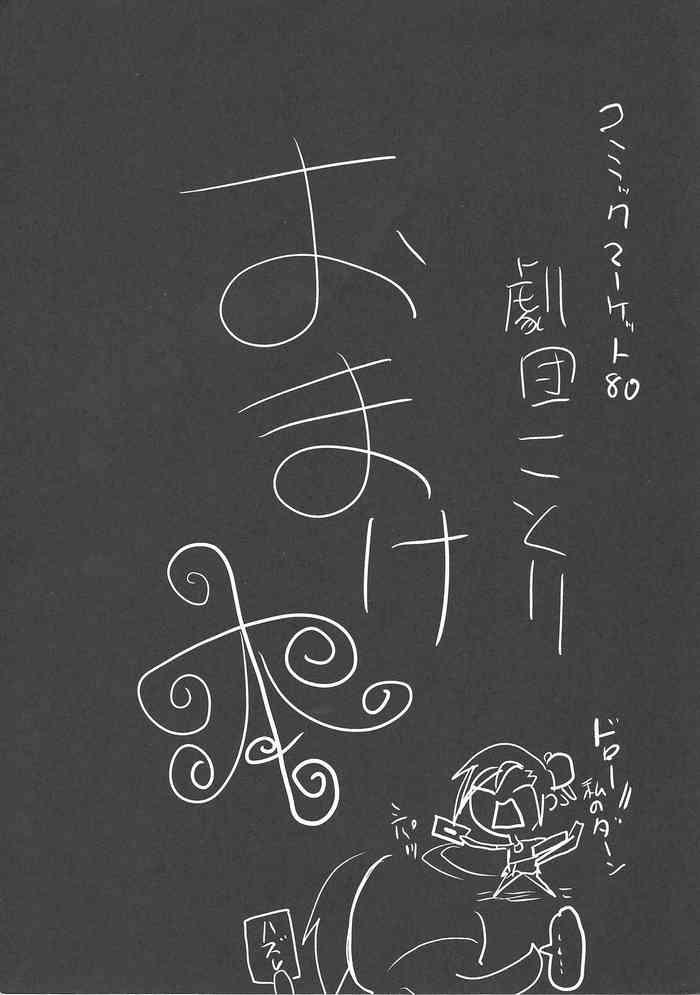 コミックマーケット80
劇団ことり
おまけ
ドロー!!
私のターン
シュパッ
ハズレ